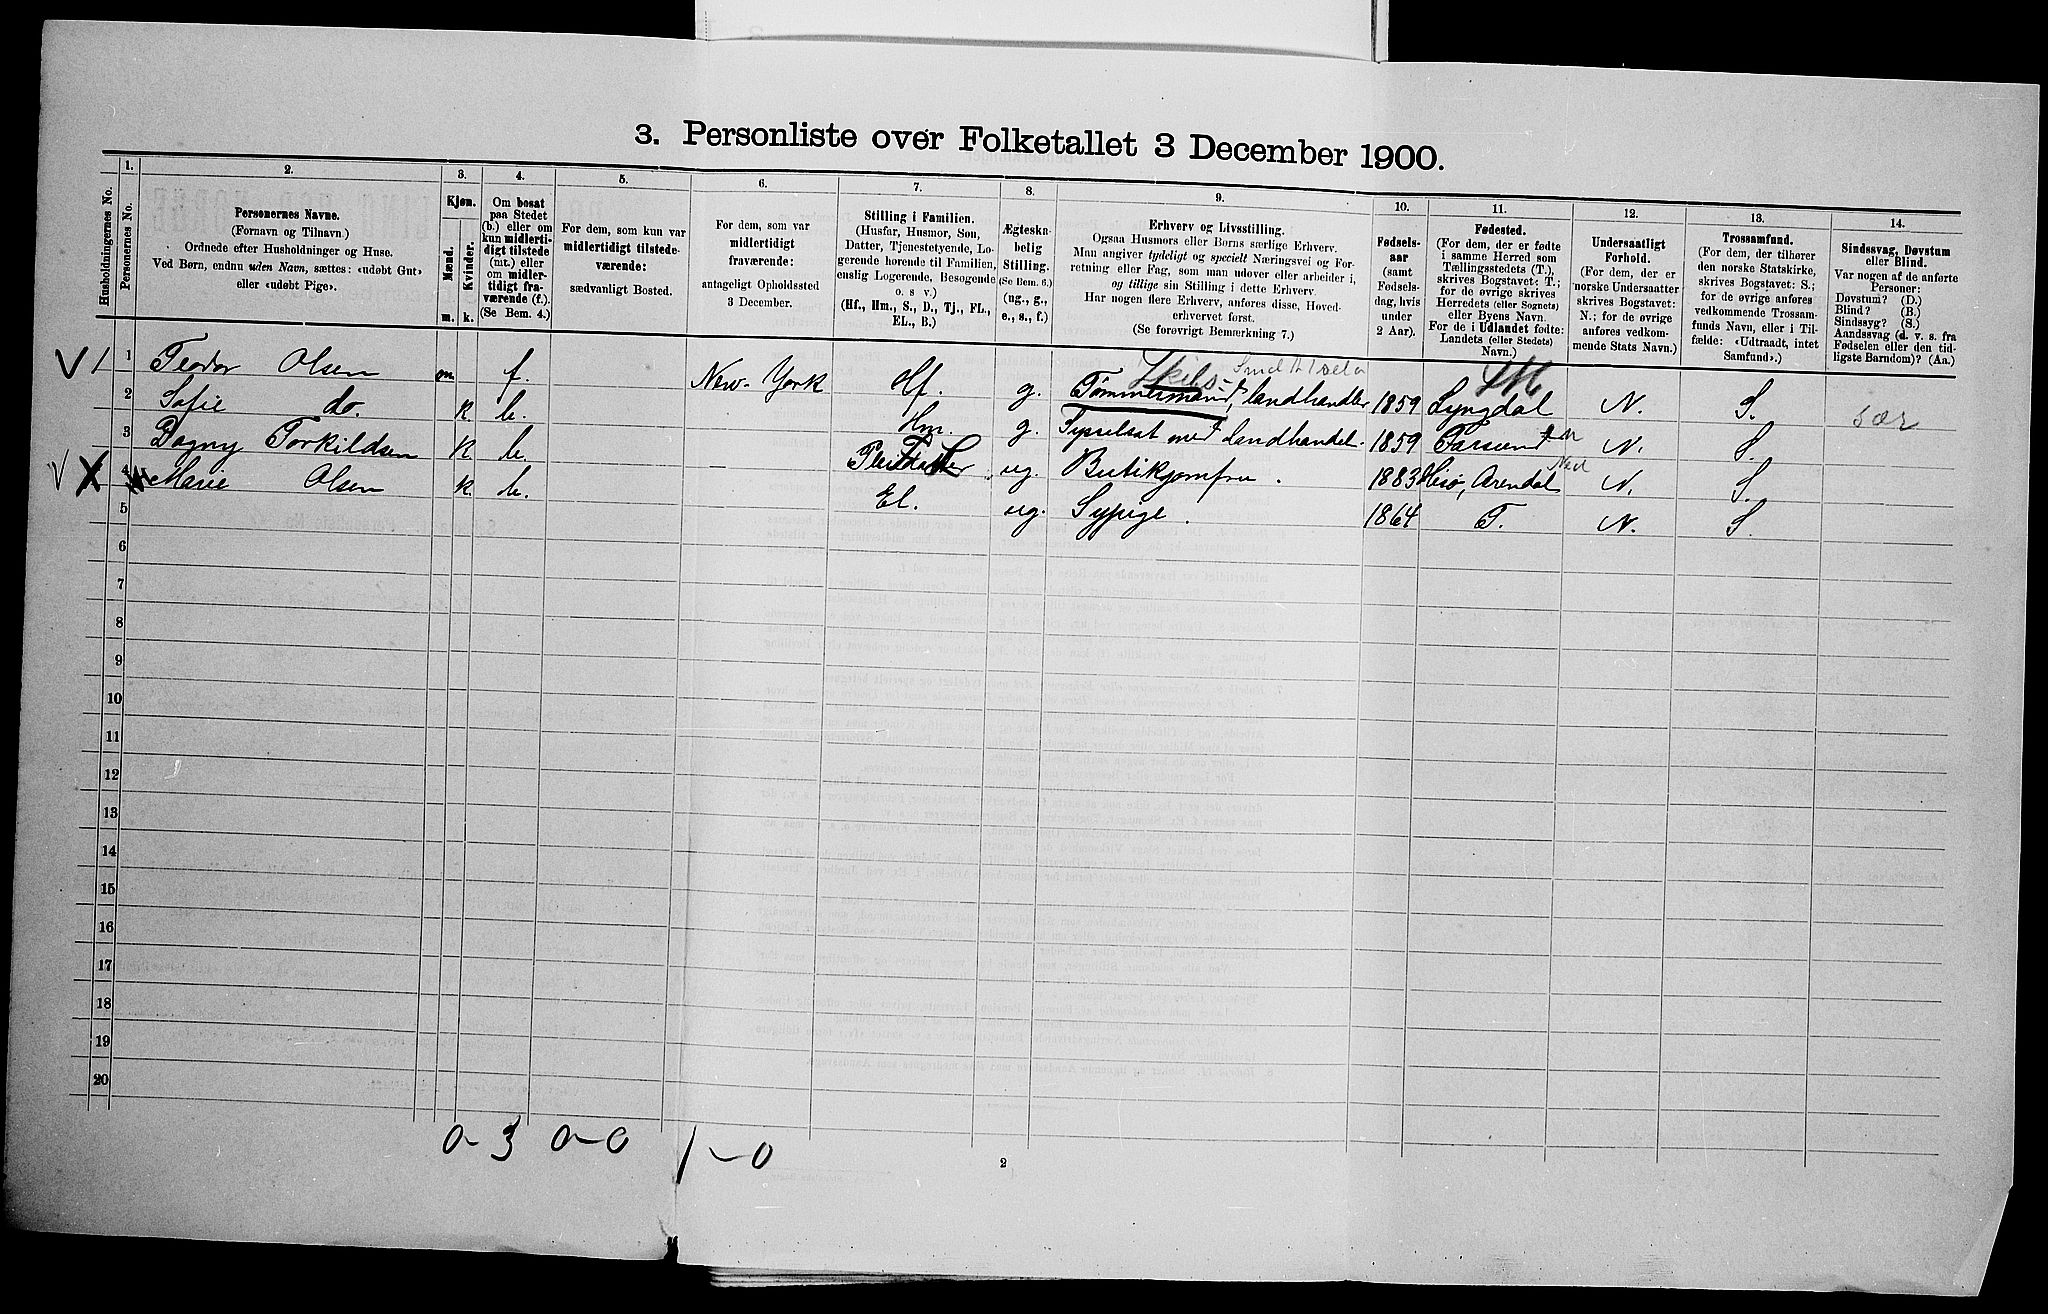 3. Personliste over Folketallet 3 December 1900.
Husholdningernes No.
1.
Personernes No.
2.
Personernes Navne.
(Fornavn og Tilnavn.)
Ordnede efter Husholdninger og Huse.
Ved Børn, endnu uden Navn, sættes: «udøbt Gut»
eller «udøbt Pige».
3.
Kjøn.
Mænd.
Kvinder.
m. k.
4.
Om bosat
paa Stedet
(b.) eller om
kun midlerti-
digt tilstede
(mt.) eller
om midler-
tidigt fra-
værende (f.).
(Se Bem. 4.)
5.
For dem, som kun var
midlertidigt tilstede-
værende:
sædvanligt Bosted.
6.
For dem, som var
midlertidigt
fraværende:
antageligt Opholdssted
3 December.
7.
Stilling i Familien.
(Husfar, Husmor, Søn,
Datter, Tjenestetyende, Lo-
gerende hørende til Familien,
enslig Logerende, Besøgende
o. s v.)
(Hf., Hm., S., D., Tj., FL.,
EL., B.)
8.
Ægteska-
belig
Stilling.
(Se Bem. 6.)
(ug., g.,
e., s., f.)
9.
Erhverv og Livsstilling.
Ogsaa Husmors eller Børns særlige Erhverv.
Man angiver tydeligt og specielt Næringsvei og For-
retning eller Fag, som man udøver eller arbeider i,
og tillige sin Stilling i dette Erhverv.
Har nogen flere Erhverv, anføres disse, Hoved-
erhvervet først.
(Se forøvrigt Bemærkning 7.)
10.
Fødsels-
aar
(samt
Fødsels-
dag, hvis
under
2 Aar).
11.
Fødested.
(For dem, der er fødte
i samme Herred som
Tællingsstedets (T.),
skrives Bogstavet: T.;
for de øvrige skrives
Herredets (eller Sognets)
eller Byens Navn.
For de i Udlandet fødte:
Landets (eller Stedets)
Navn.)
12.
Undersaatligt
Forhold.
(For dem, der er
norske Undersaatter
skrives Bogstavet:
N.; for de øvrige
anføres vedkom-
mende Stats Navn.)
13.
Trossamfund.
(For dem, der tilhører
den norske Statskirke,
skrives Bogstavet: S.;
for de øvrige anføres
vedkommende Trossam-
funds Navn, eller i Til-
fælde: «Udtraadt, intet
Samfund».)
14.
Sindssvag, Døvstum
eller Blind.
Var nogen af de anførte
Personer:
Døvstum? (D.)
Blind? (B.)
Sindssyg? (S.)
Aandssvag (d. v. s. fra
Fødselen eller den tid-
ligste Barndom)? (Aa.)
1 1 Teodor Olsen m f. New-York Hf. g. Tømmermand, landhandler 1859 Lyngdal N. S.
2 Sofie do. k b. Hm. g. Sysselsat med landhandel. 1859 Farsund N. S. sær
3 Dagny Torkildsen k b. — Pleiedatter ug. Butikjomfru. 1883 Hisø, Arendal N. S.
4 Marie Olsen k. b. El. ug. Sypige. 1864 T. N. S.
5
6
7
8
9
10
11
12
13
14
15
16
17
18
19
20
0-3 0-0 1-0
2